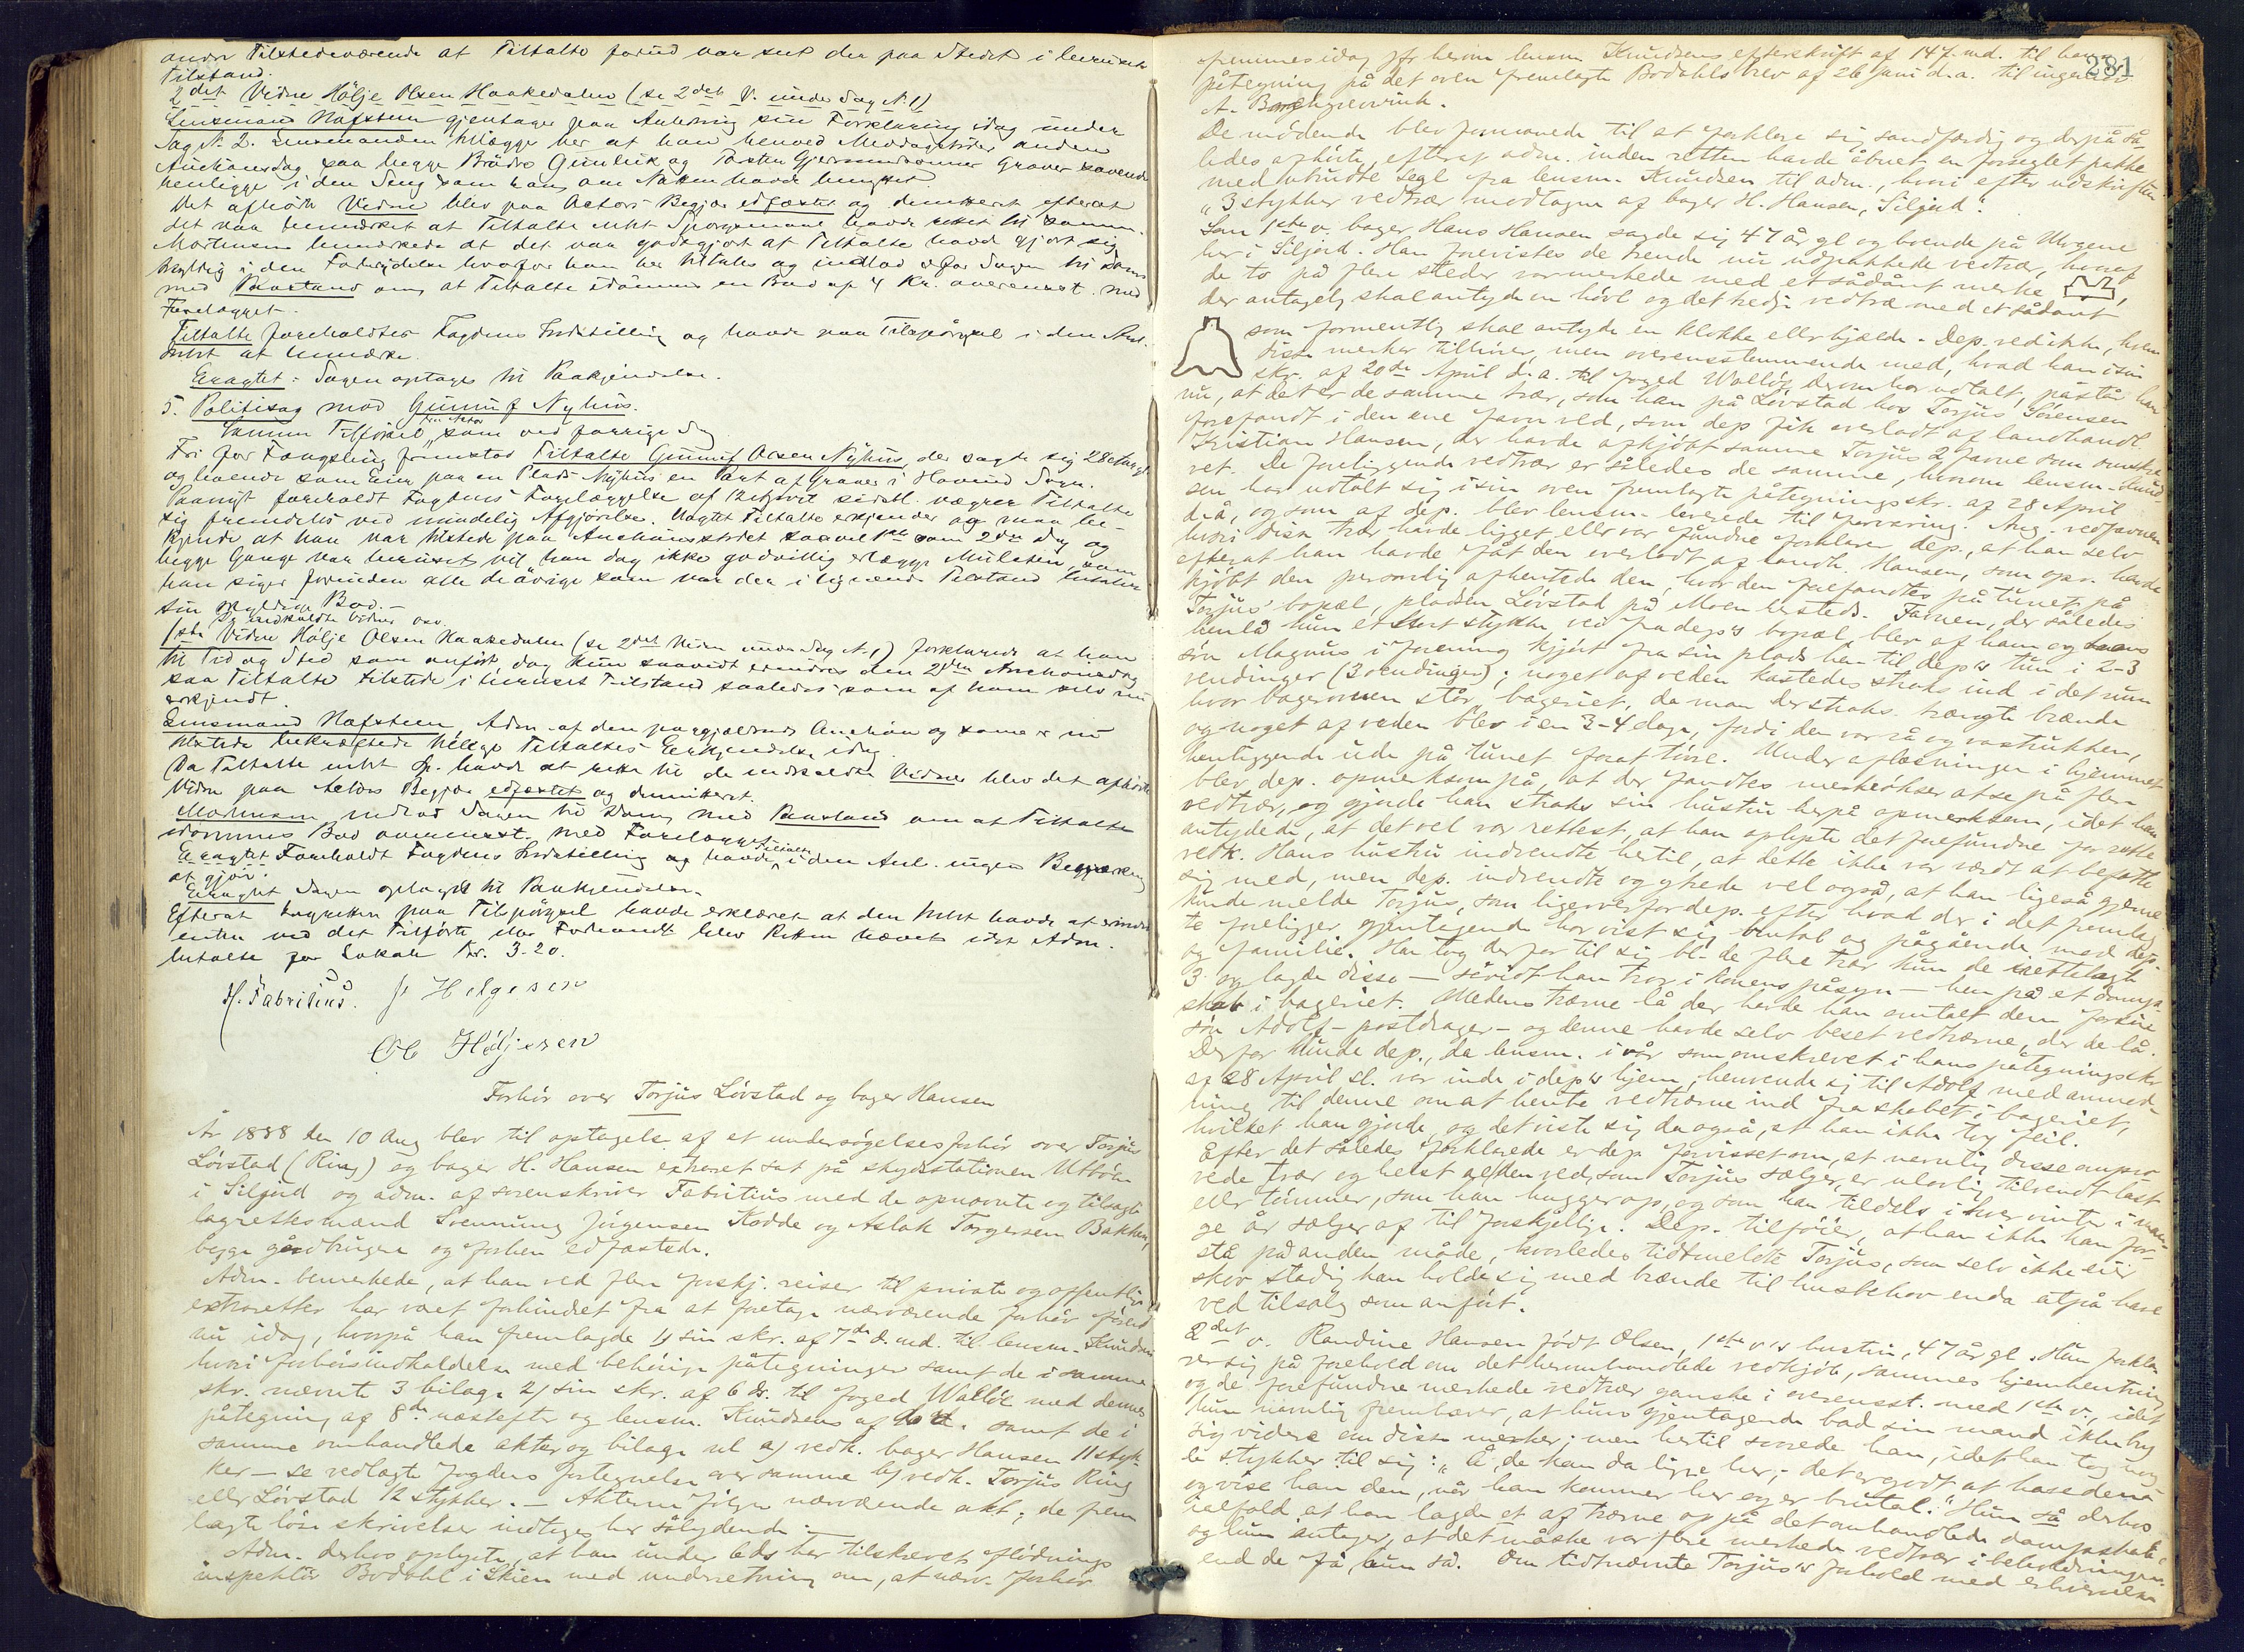 andre Tilstedeværende at Tiltalte forud var seet der paa Stedet i beruset
Tilstand.
2det Vidne Hölje Olsen Haakedalen (se 2det V. under Sag N. 1)
Lensmand Hafsteen gjentager paa Anledning sin Forklaring idag under
Sag N. 2. Lensmanden tillægger her at han henved Meddagstider anden
Auctionsdag saa begge Brödre Gunleik og Tosten Gjermundsønner Graver sovende
henligge i den Seng som han om Natten havde benyttet
Det afhörte Vidne blev paa Actors Begjær edfæstet og demitteret efterat
det var bemærket at Tiltalte intet Spörgsmaal havde rettet til samme.
Mortensen bemærkede at det var godtgjort at Tiltalte havde gjort sig
skyldig i den Forbrydelse hvorfor han her tiltales og indlod derfor Sagen til Doms
med Paastand om, at Tiltalte idømmes en Bod af 4 Kr. overenst. med
Forelægget.
Tiltalte foreholdtes Fogdens Indstilling og havde paa Tilspörgsel i den Anl.
intet at bemærke.
Eragtet: Sagen optages til Paakjendelse.
5. Politisag mod Gunnuf Nyhus.
Samme Tilförsel som ved forrige Sag
Fri for Fængsling fremstod Tiltalte Gunnuf Olsen Nyhus, der sagde sig 28 Aar gl.
og boende som Eier paa en Plads Nyhus en Part af Graver i Hovind Sogn.
Paanyt foreholdt Fogdens Forelæggelse af 12 April sidstl. vægrer Tiltalte
sig fremdeles ved mindelig Afgjörelse. Uagtet Tiltalte erkjender og maa be-
kjende at han var tilstede paa Auctionsstedet saavel 1ste som 2den Dag og
begge Gange var beruset vil han dog ikke godvillig erlægge Mulcten, som
han siger forinden alle de övrige som var der i lignende Tilstand betaler
sin skyldige Bod.
De indkaldte Vidner var.
1ste Vidne Hölje Olsen Haakedalen (se 2det Vidne under Sag N. 1) forklarede at han
til Tid og Sted som anfört, dog kun saavidt erindres den 2den Auctionsdag
saa Tiltalte tilstede i beruset Tilstand saaledes som af ham selv nu
erkjendt.
Lensmand Hafsteen, Adm. af den paagjældende Auction og som er nu
tilstede bekræftede tillige Tiltaltes Erkjendelse idag.
Da Tiltalte intet Sp. havde at rette til de indkaldte Vidner blev det afhörte
Vidne paa Actors Begjær edfæstet og demitteret.
Mortensen indlod Sagen til Doms med Paastand om at Tiltalte
idømmes Bod overenst. med Forelægget.
Tiltalte
Eragtet Foreholdt Fogdens Indstilling og havde i den Anl. ingen Begjæring
at gjöre.
Eragtet Sagen optages til Paakjendelse.
Efterat Lagretten paa Tilspörgsel havde erklæret at den intet havde at erindre
enten ved det Tilförte eller Forhandl. blev Retten hævet idet Adm.
betalte for Lokale Kr. 3.20.
H. Fabritius. J. Helgesen
Ole Höljesen
Forhör over Torjus Lövstad og bager Hansen
År 1888 den 10 Aug blev til optagelse af et undersögelsesforhör over Torjus
Lövstad (Ring) og bager H. Hansen extraret sat på skydsstationen Utböen
i Siljord og adm. af sorenskriver Fabritius med de opnævnte og tilsagte
lagrettesmænd Svennung Jörgensen Kodde og Aslak Torgersen Bakken,
begge gårdbrugere og forhen edfæstede.
Adm. bemerkede, at han ved flere forskj. reiser til private og offentlige
extraretter har vært forhindret fra at foretage nærværende forhör förend
nu idag, hvorpå han fremlagde 1/ sin skr. af 7de d. md. til lensm. Knudsen
hvori forhörsindkaldelse med behörige påtegninger samt de i samme
skr. nævnte 3 bilage 2/ sin skr. af 6 ds. til foged Walløe med dennes
påtegning af 8de næstefter og lensm. Knudsens af 10 d. samt de i
samme omhandlede akter og bilage nl a/ vedk. bager Hansen 11 styk-
ker – se vedlagte fogdens fortegnelse over samme b/ vedk. Torjus Ring
eller Lövstad 12 stykker. – Akterne fölger nærværende akt; de frem
lagte löse skrivelser indtages her sålydende:
Adm. derhos oplyste, at han under 6 ds. har tilskrevet flödnings
inspektör Bødahl i Skien med underretning om, at nærv. forhör
281
fremmes idag jfr. herom lensm. Knudsens efterskrift af 14 f. md. til ham
påtegning på det oven fremlagte Bødahls brev af 26 juni d.a. til ingeniör
A. Borchgrevink.
De mödende blev formanede til at forklare sig sandfærdig og derpå så-
ledes afhörte, efterat adm. inden retten havde åbnet en forseglet pakke
med ubrudte segl fra lensm. Knudsen til adm., hvori efter udskriften
"3 stykker vedtrær modtagne af bager H. Hansen, Siljord".
Som 1ste v. bager Hans Hansen sagde sig 47 år gl. og boende på Mogene
her i Siljord. Han forevistes de trende nu udpakkede vedtrær, hvoraf
de to på flere steder var merkede med et sådant merke,
der antagelig skal antyde en hövl og det tredje vedtræ med et sådant
som formentlig skal antyde en klokke eller bjælde. Dep. ved ikke, hvem
disse merker tilhörer, men overensstemmende med, hvad han i sin
skr. af 20de April d.a. til foged Walløe derom har udtalt, påstår han
nu, at det er de samme trær, som han på Lövstad hos Torjus Sörensen
forefandt i den ene favn ved, som dep. fik overladt af landhandl.
Kristian Hansen, der havde afkjöbt samme Torjus 2 favne som omskre
vet. De foreliggende vedtrær er således de samme, hvorom lensm. Knud-
sen har udtalt sig i sin oven fremlagte påtegningsskr. af 28 April
d.å., og som af dep. blev lensm. leverede til forvaring. Ang. vedfavnen
hvori disse trær havde ligget eller var fundne forklarer dep., at han selv
efterat han havde fåt den overladt af landh. Hansen, som opr. havde
kjöbt den personlig afhentede den, hvor den forefandtes på tunet på
Torjus' bopæl, pladsen Lövstad på Moen hersteds. Favnen, der således
henlå kun et kort stykke vei fra dep's bopæl, blev af ham og hans
sön Magnus i forening kjört fra sin plads hen til dep's tun i 2-3
vendinger (3 vendinger); noget af veden kastedes straks ind i det rum
hvor bagerovnen står, bageriet, da man der straks trængte brænde
og noget af veden blev i en 3-4 dage, fordi den var rå og vastrukken,
henliggende ude på tunet forat törre. Under aflæsningen i hjemmet
blev dep. opmerksom på, at der fandtes merkeökser at se på flere
vedtrær, og gjorde han straks sin hustru herpå opmerksom, idet han
antydede, at det vel var rettest, at han oplyste det forefundne for rette
vedk. Hans hustru indvendte hertil, at dette ikke var værdt at befatte
sig med, men dep. indvendte og ytrede vel også, at han ligeså gjerne
kunde melde Torjus, som ligeoverfor dep. efter hvad der i det fremlag-
te foreligger gjentagende har vist sig brutal og pågående mod dep.
og familie. Han tog derfor til sig bl. de flere trær kun de irettelagte
3 og lagde disse – såvidt han tror i konens påsyn – hen på et damp-
skab i bageriet. Medens trærne lå der havde han omtalt dem for sin
sön Adolf – postdrager – og denne havde selv beset vedtrærne, der de lå.
Derfor kunde dep., da lensm. i vår som omskrevet i hans påtegningsskr.
af 28 April sl. var inde i dep's hjem, henvende sig til Adolf med anmod-
ning til denne om at hente vedtrærne ind fra skabet i bageriet,
hvilket han gjorde, og det viste sig da også, at han ikke tog feil.
Efter det således forklarede er dep. forvisset om, at nemlig disse ompro-
vede trær og helst al den ved, som Torjus sælger, er ulovlig tilvendt last
eller tömmer, som han hugger op, og som han tildels i hver vinter i man-
ge år sælger af til forskjellige. Dep. tilföier, at han ikke kan for-
stå på anden måde, hvorledes tidtmeldte Torjus, som selv ikke eier
skov stadig kan holde sig med brænde til husbehov enda atpå have
ved tilsalg som anfört.
2det v. Randine Hansen födt Olsen, 1ste v's hustru, 47 år gl. Hun forkla-
rer sig på forehold om det heromhandlede vedkjöb, sammes hjemhentning
og de forefundne merkede vedtrær ganske i overensst. med 1ste v., idet
hun nemlig fremhæver, at hun gjentagende bad sin mand ikke bry
sig videre om disse merker; men hertil svarede han, idet han tog nog-
le stykker til sig: "Å, de kan da ligge her; det er godt, at have dem
og vise han dem, når han kommer her og er brutal." Hun så derhos
ialfald at han lagde et af trærne op på det omhandlede dampskab,
og hun antager, at det måske var flere merkede vedtrær i beholdningen
end de få, hun så. Om tidtnævnte Torjus's forhold med erhvervelse